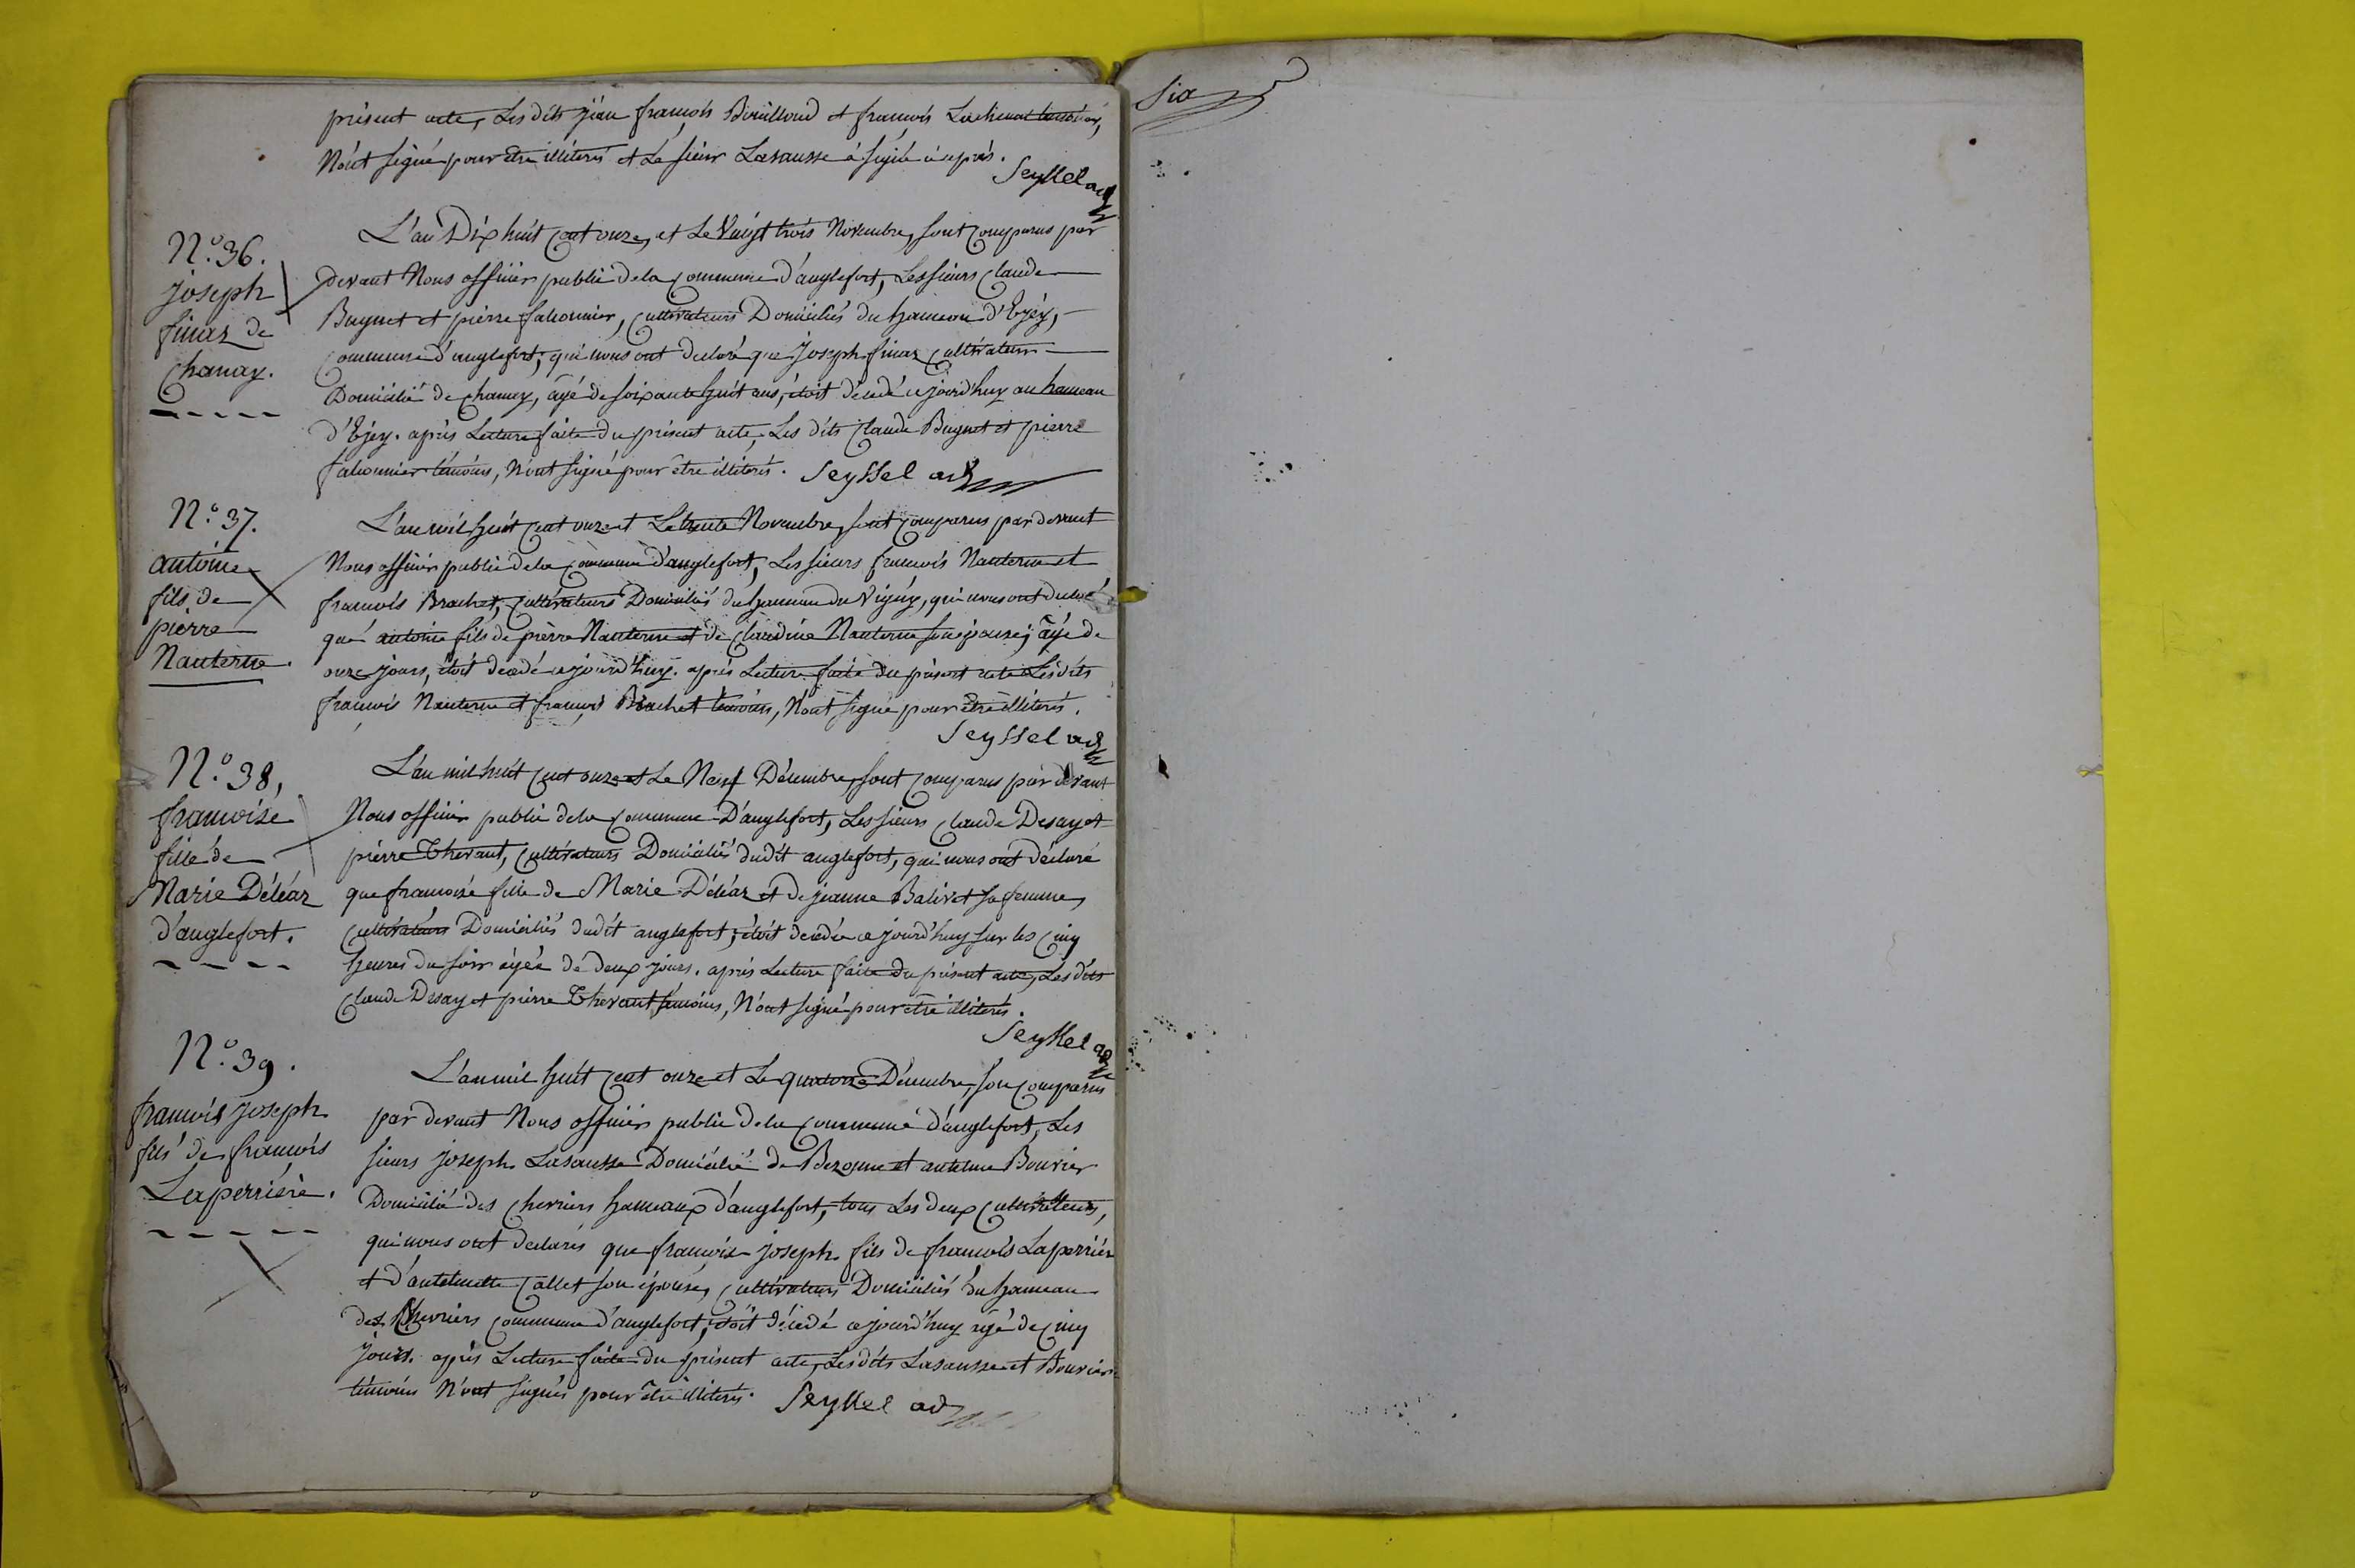 présent acte, Les dits jean françois Bouilloud et françois Lachenal temoins,
N'ont signé pour être illiterés et Le sieur Lasausse à signé
Seyssel adj
N.º 36.
joseph
finaz de
Chanay.
L'an Dix huit cent onze, et Le Vingt trois Novembre, sont comparus par
devant Nous officier public de la commune d'anglefort, Les sieurs Claude
Bugnet et pierre falconnier, cultivateurs Domiciliés du hameau d'Ejéy,
commune d'anglefort, qui nous ont declaré que Joseph finaz cultivateur
Domicilié de Chanay, âgé de soixante huit ans, étoit décedé cejourd'huy au hameau
d'Ejey. après Lecture faite du présent acte, Les dits Claude Bugnet et pierre
falconnier témoins, N'ont signé pour être illiterés. Seyssel adj
N.º 37.
antoine
fils de
pierre
Nanterne.
L'an mil huit cent onze et Le trente Novembre, sont comparus par devant
Nous officier public de la commune d'anglefort, Les sieurs françois Nanterne et
françois Brachet, cultivateurs Domiciliés du hameau du Vigéuy, qui nous ont declaré
que antoine fils de pièrre Nanterne et de Claudine Nanterne son épouse, âgé de
onze jours, étoit decedé cejourd'huy. après Lecture faite du présent acte Les dits
françois Nanterne et françois Brachet témoins, N'ont signé pour être illiterés.
Seyssel adj
N.º 38,
françoise
fille de
Marie Déléaz
d'anglefort.
L'an mil huit cent onze et Le Neuf Décembre, sont comparus par devant
Nous officier public de la commune D'anglefort, Les sieurs Claude Desay et
pièrre Thevant, cultivateurs Domiciliés dudit anglefort, qui nous ont déclaré
que françoise fille de Marie Déléaz et de jeanne Balivet sa femme,
cultivateurs Domiciliés dudit anglefort, étoit decedée cejourd'huy sur les cinq
heures du soir âgée de deux jours. après Lecture faite du présent acte, Les dits
Claude Desay et pièrre Thevant témoins, N'ont signé pour être illiterés.
Seyssel adj
N.º 39.
françois joseph
fils de françois
Laperriére.
L'an mil huit cent onze et Le quatorze Décembre, son comparus
par devant Nous officier public de la commune d'anglefort, Les
sieurs joseph Lasausse Domicilié de Bezonne et antelme Bouvier
Domicilié des Chevriers hameaux d'anglefort, tous Les deux cultivateurs,
qui nous ont declarés que françois joseph fils de françois Laperriér
et d'antelmette Callet son épouse, cultivateurs Domiciliés du hameau
des Chevriers commune d'anglefort, étoit décedé cejourd'huy agé de cinq
jours. après Lecture faite du présent acte, Les dits Lasausse et Bouvier
témoins N'ont signés pour être illiterés. Seyssel adj
Six